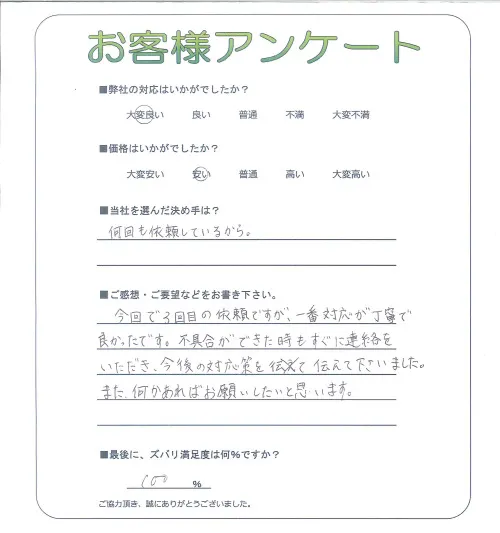 お客様アンケート
■弊社の対応はいかがでしたか？
大変良い 良い 普通 不満 大変不満
■価格はいかがでしたか？
大変安い 安い 普通 高い 大変高い
■当社を選んだ決め手は？
何回も依頼しているから。
■ご感想・ご要望などをお書き下さい。
今回で3回目の依頼ですが、一番対応が丁寧で
良かったです。不具合がでてきた時もすぐに連絡を
いただき、今後の対応策を伝えて下さいました。
また、何かあればお願いしたいと思います。
■最後に、ズバリ満足度は何％ですか？
100 ％
ご協力頂き、誠にありがとうございました。